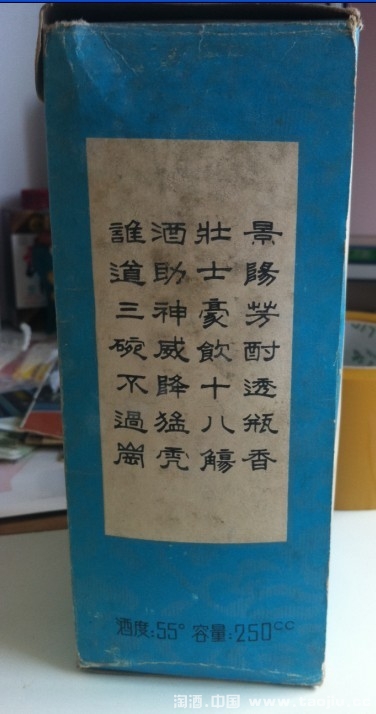 景陽芳酎透瓶香
壯士豪飲十八觴
酒助神威降猛虎
誰道三碗不過崗
酒度:55° 容量:250CC
淘酒.中国 www.taojiu.c